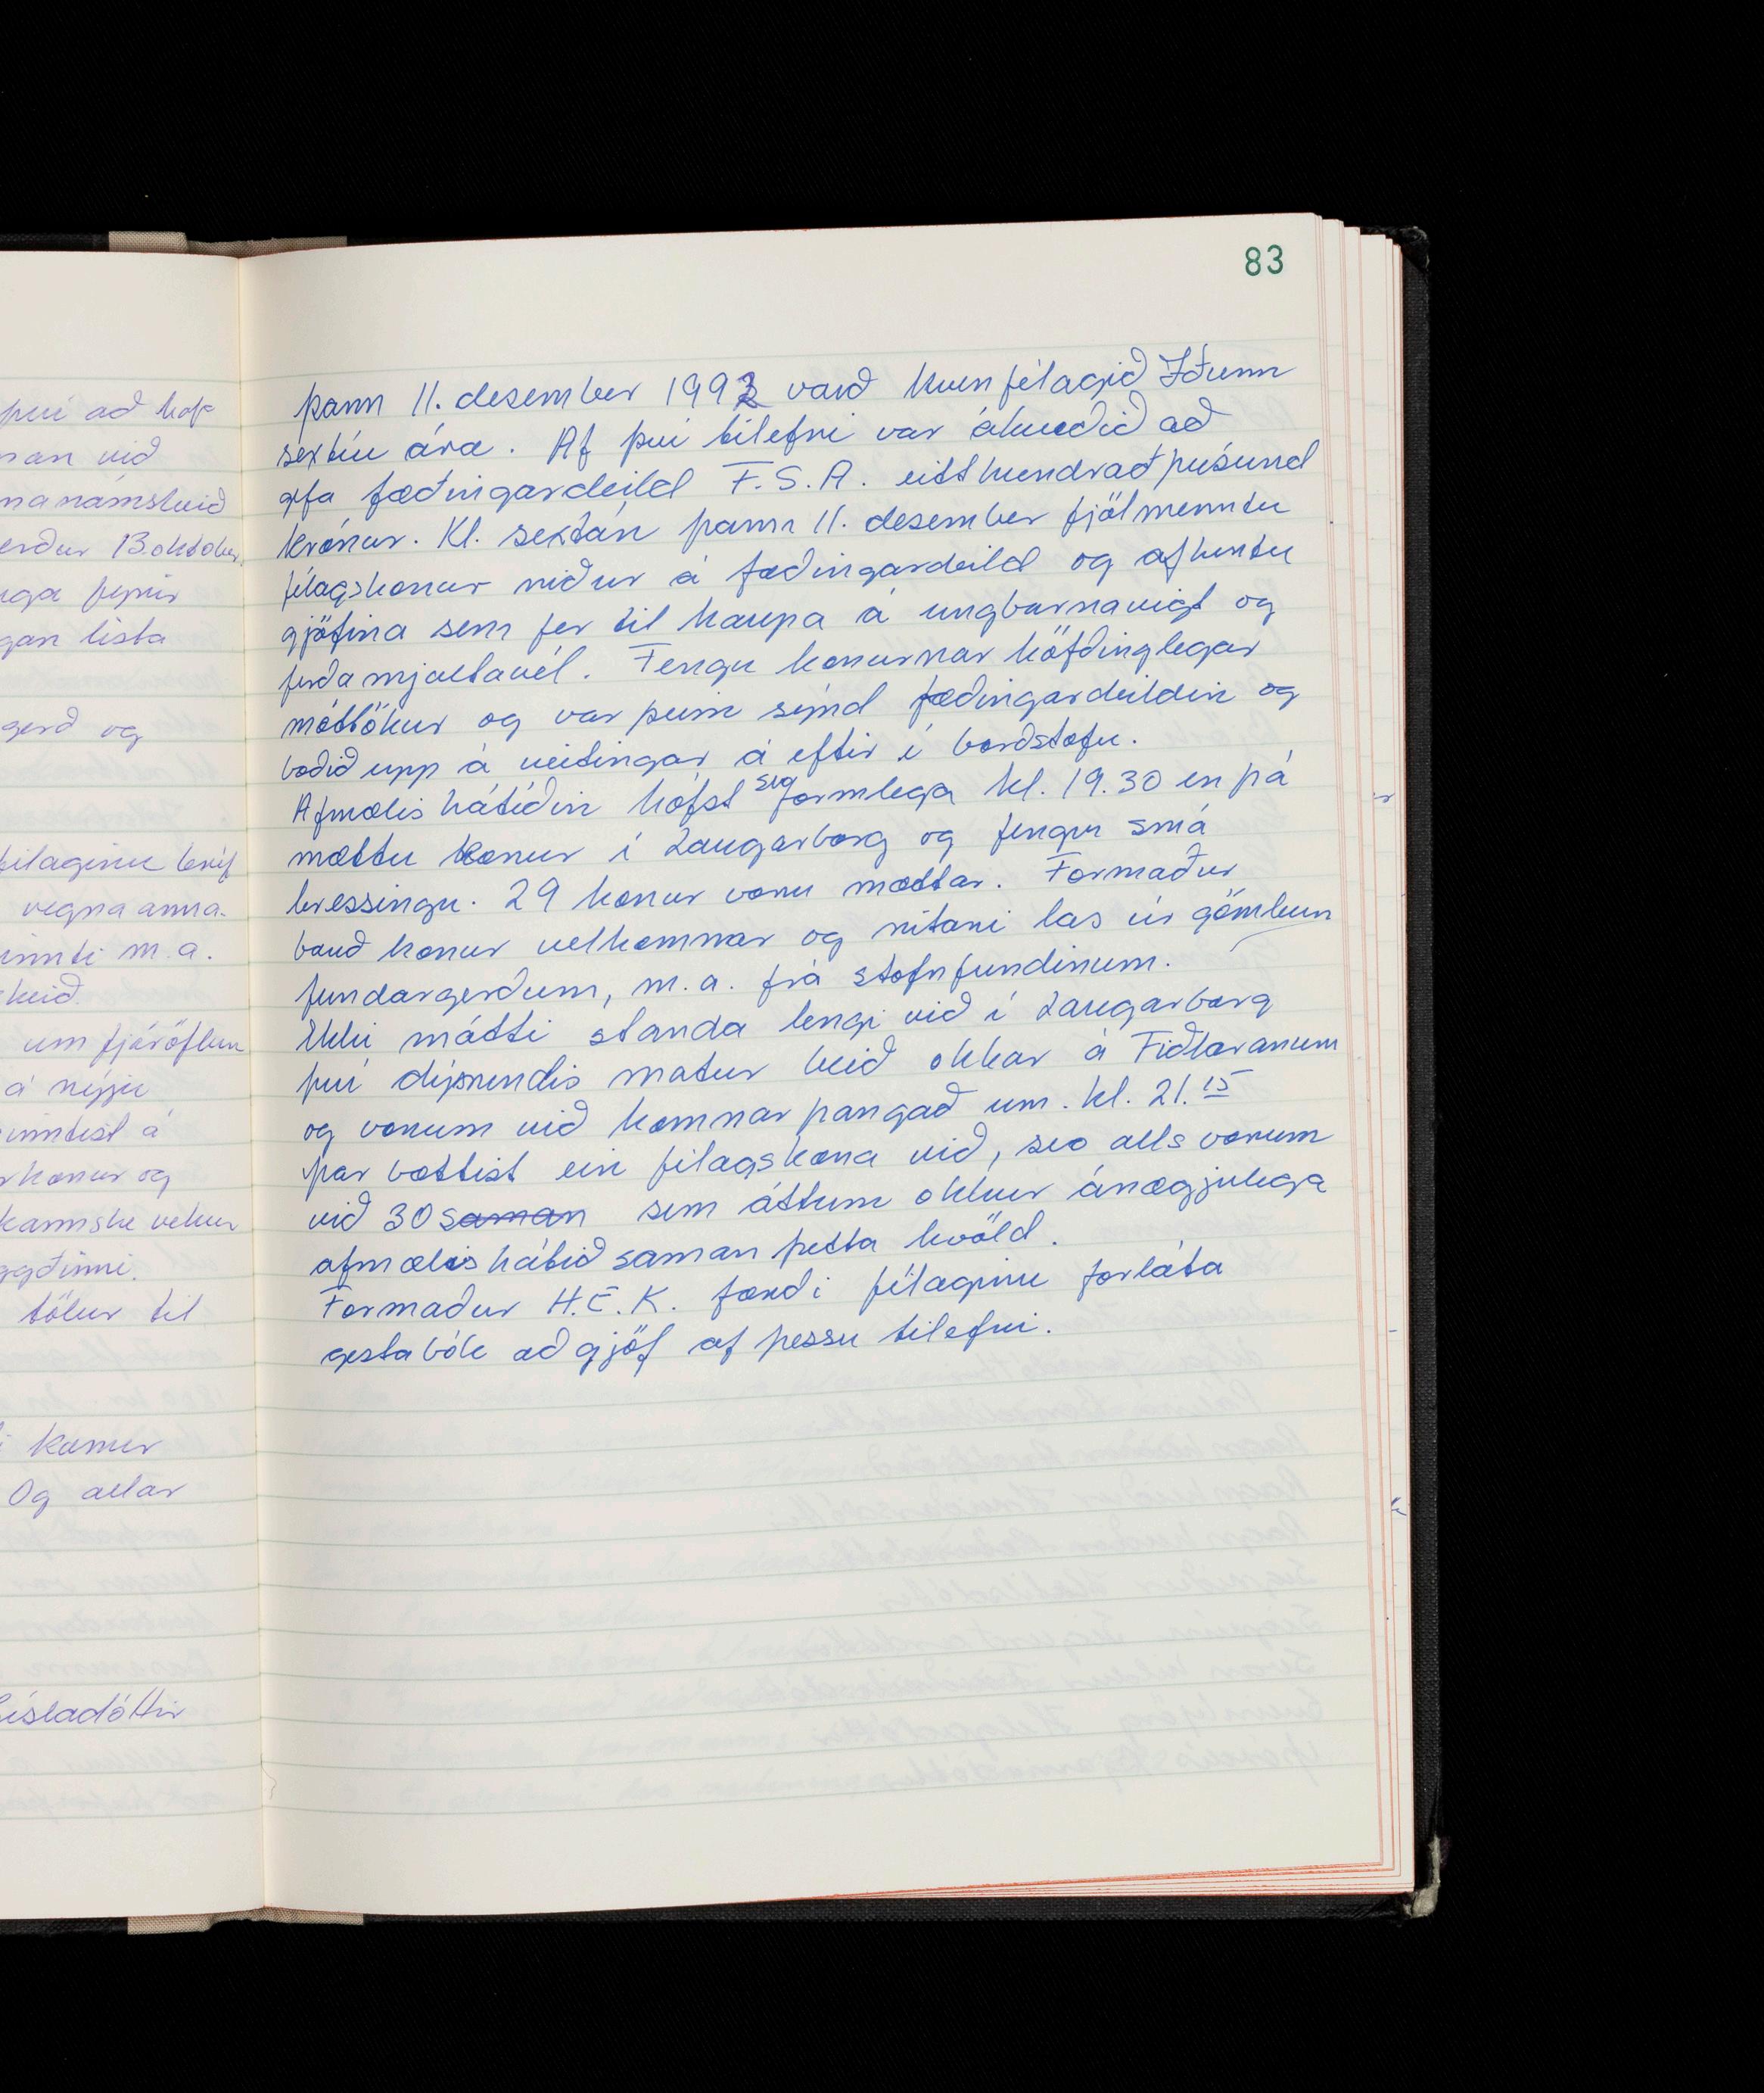 83
því að hafa
man við
námskeið
verður 13. október
fyrir
lista
gerð og
félaginu bréf
vegna anna-
m.a.
um fjáröflun
á nýju
á
konur og
kannske vekur
tölur til
kemur
Og allar
Gísladóttir
Þann 11. desember 1992 varð kvenfélagið Iðunn
sextíu ára. Af því tilefni var ákveðið að
gefa fæðingardeild F.S.A. eitthundrað þúsund
krónur. Kl. sextán þann 11. desember fjölmenntu
félagskonur niður á fæðingardeild og afhentu
gjöfina sem fer til kaupa á ungbarnavigt og
ferðamjaltavél. Fengu konurnar höfðinglegar
móttökur og var þeim sýnd fæðingardeildin og
boðið upp á veitingar á eftir í borðstofu.
Afmælishátíðin hófst svo formlega kl. 19.30 en þá
mættu konur í Laugarborg og fengu smá
hressingu. 29 konur voru mættar. Formaður
bauð konur velkomnar og ritari las úr gömlum
fundargerðum, m.a. frá stofnfundinum.
Ekki mátti standa lengi við í Laugarborg
því dýrindis matur beið okkar á Fiðlaranum
og vorum við komnar þangað um. kl. 21.15
Þar bættist ein félagskona við, svo alls vorum
við 30 saman sem áttum okkur ánægjulega
afmælishátíð saman þetta kvöld.
Formaður H.E.K. færði félaginu forláta
gestabók að gjöf af þessu tilefni.